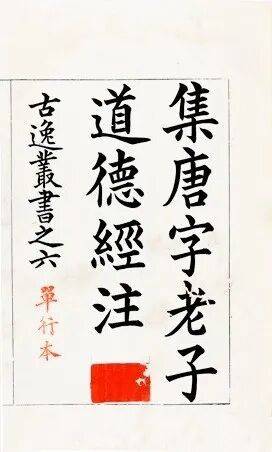 集唐字老子
道德經注
古逸叢書之六
單行本